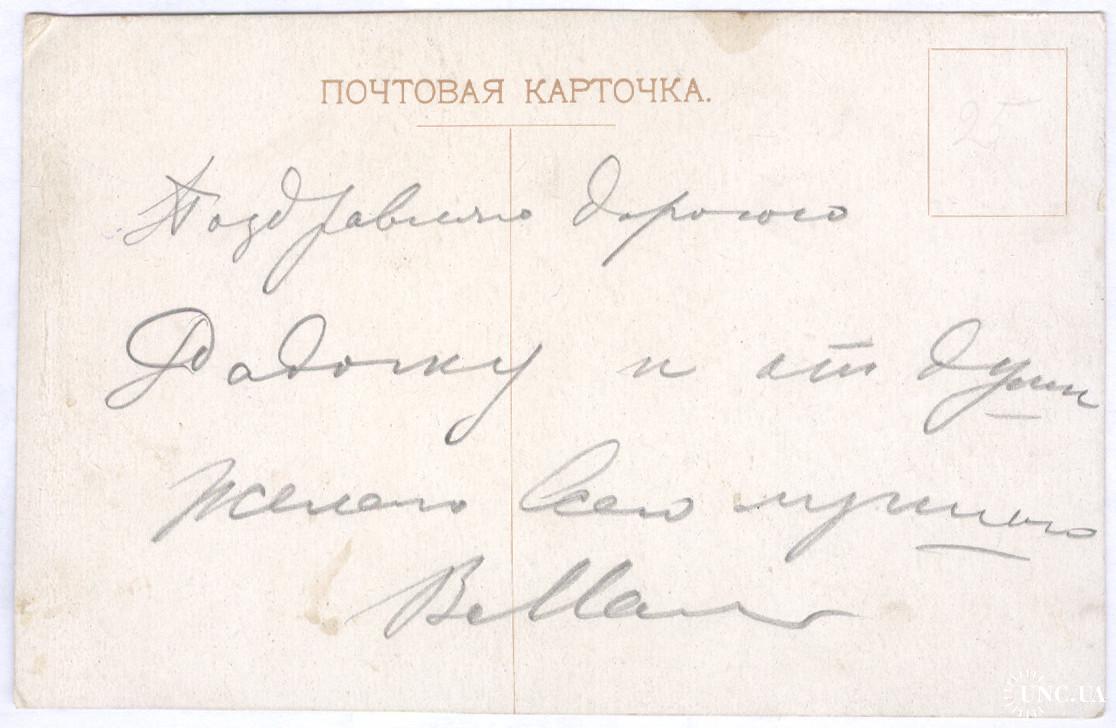 ПОЧТОВАЯ КАРТОЧКА.
25
Поздравляю дорогого
и от души
желаю всего лучшего
UNC.UA